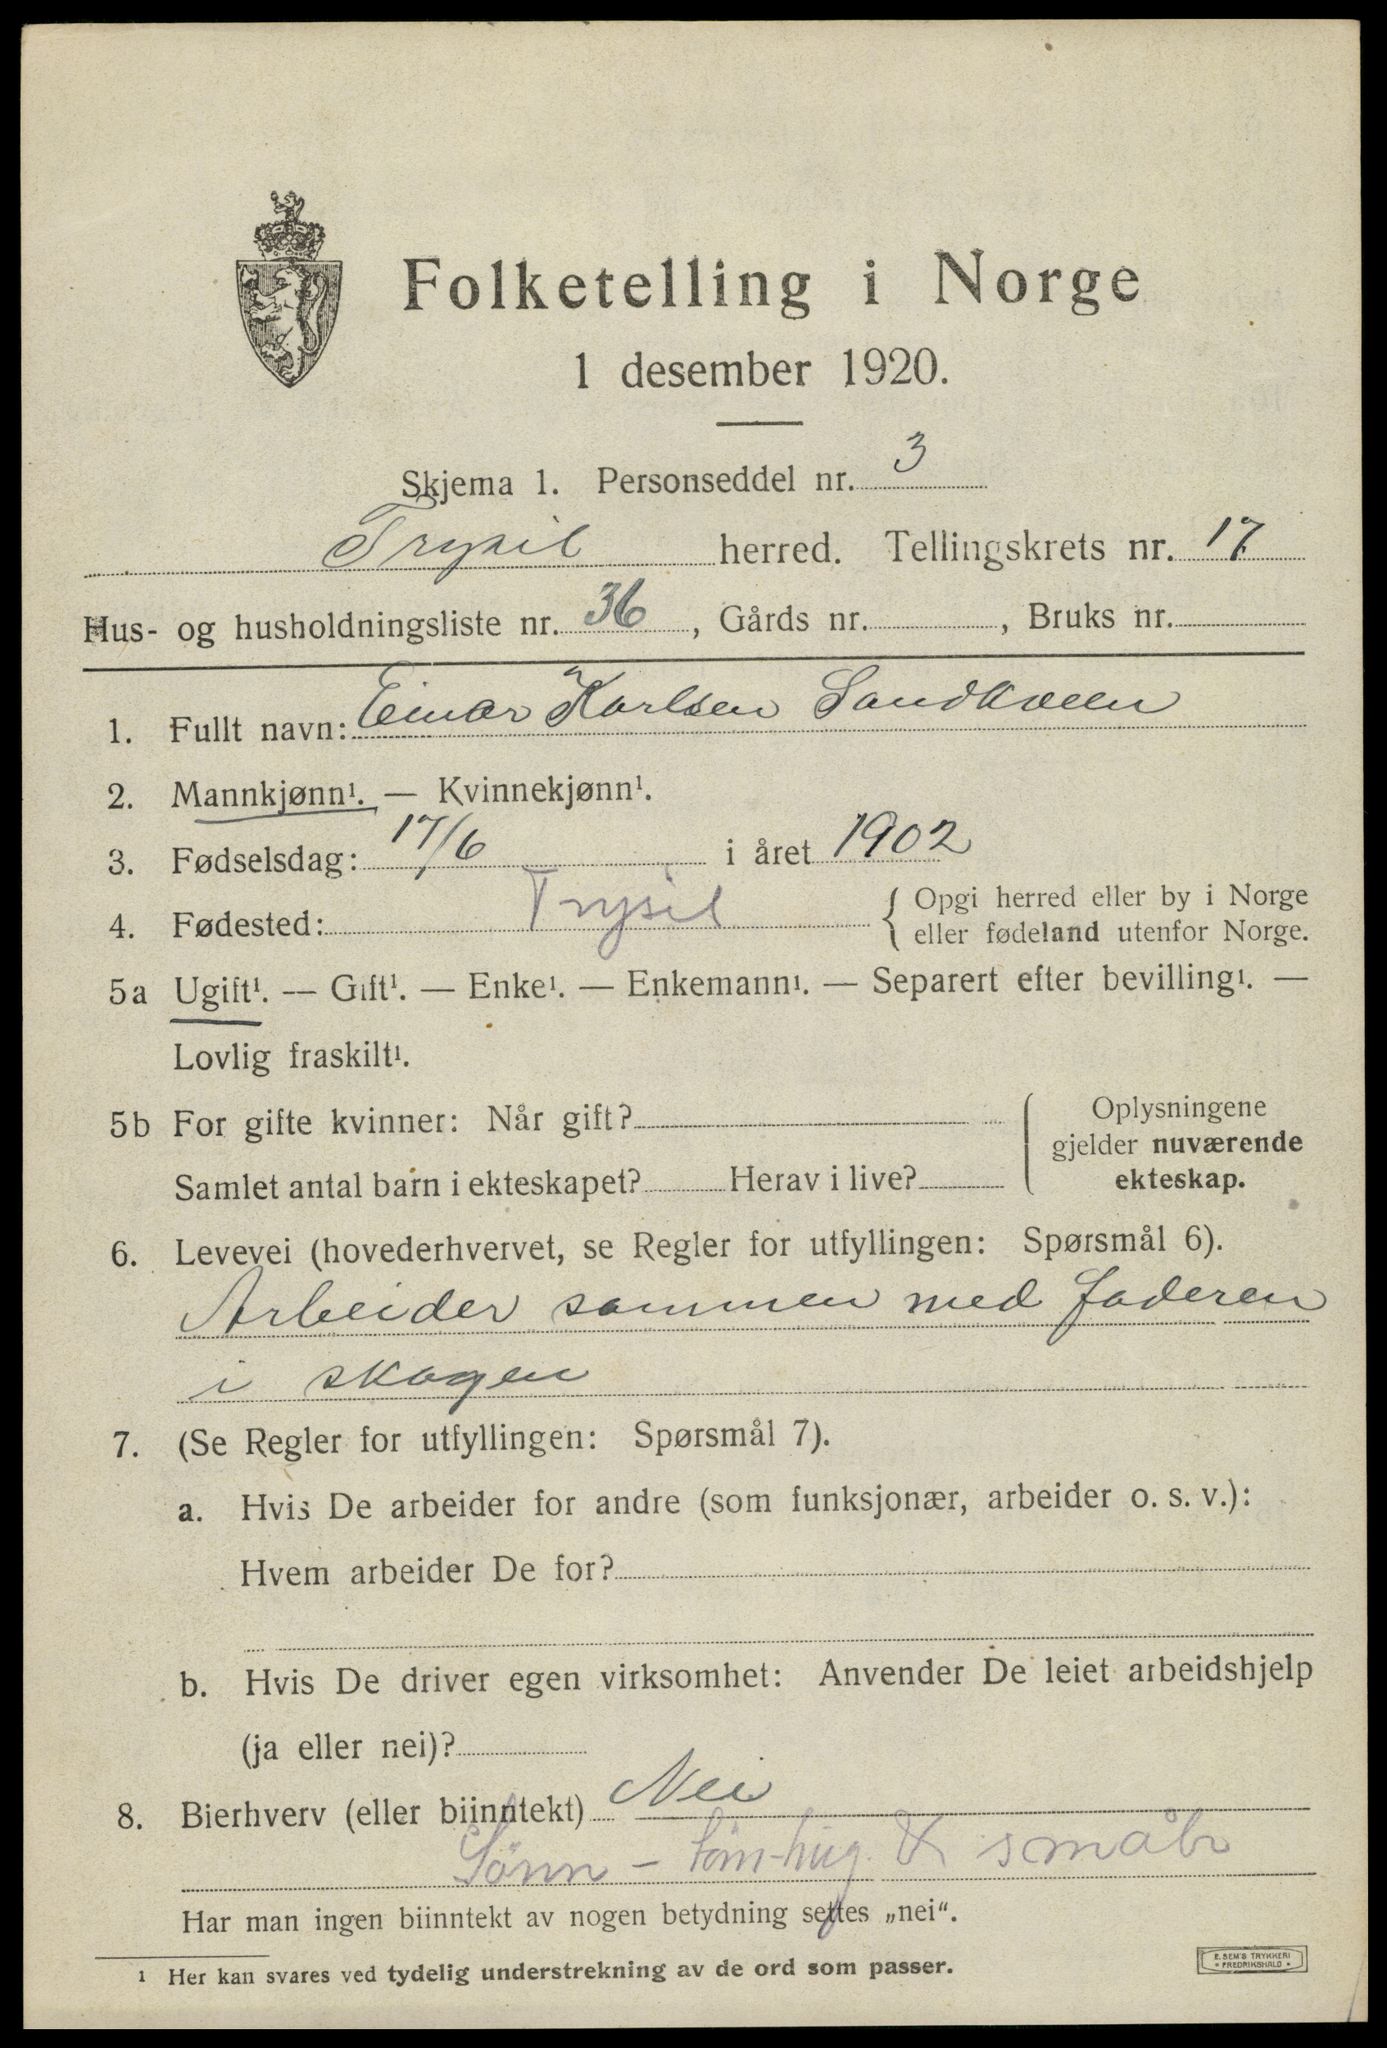 Folketelling i Norge
1 desember 1920.
Skjema 1. Personseddel nr. 3
Trysil herred. Tellingskrets nr. 17
Hus- og husholdningsliste nr. 36, Gårds nr. , Bruks nr.
1. Fullt navn: Einar Karlsen
2. Mannkjønn¹. — Kvinnekjønn¹.
3. Fødselsdag: 17/6 i året 1902
4. Fødested: Trysil { Opgi herred eller by i Norge
eller fødeland utenfor Norge.
5a Ugift¹. — Gift¹. — Enke¹. — Enkemann¹. — Separert efter bevilling¹. —
Lovlig fraskilt¹.
5b For gifte kvinner: Når gift? { Oplysningene
gjelder nuværende
Samlet antal barn i ekteskapet? Herav i live? ekteskap.
6. Levevei (hovederhvervet, se Regler for utfyllingen: Spørsmål 6).
Arbeider sammen med faderen
i skogen
7. (Se Regler for utfyllingen: Spørsmål 7).
a. Hvis De arbeider for andre (som funksjonær, arbeider o. s. v.):
Hvem arbeider De for?
b. Hvis De driver egen virksomhet: Anvender De leiet arbeidshjelp
(ja eller nei)?
8. Bierhverv (eller biinntekt) Nei
Sønn - tøm-hug. & småbr
Har man ingen biinntekt av nogen betydning settes „nei“.
¹ Her kan svares ved tydelig understrekning av de ord som passer.
E. SEM'S TRYKKERI
FREDRIKSHALD